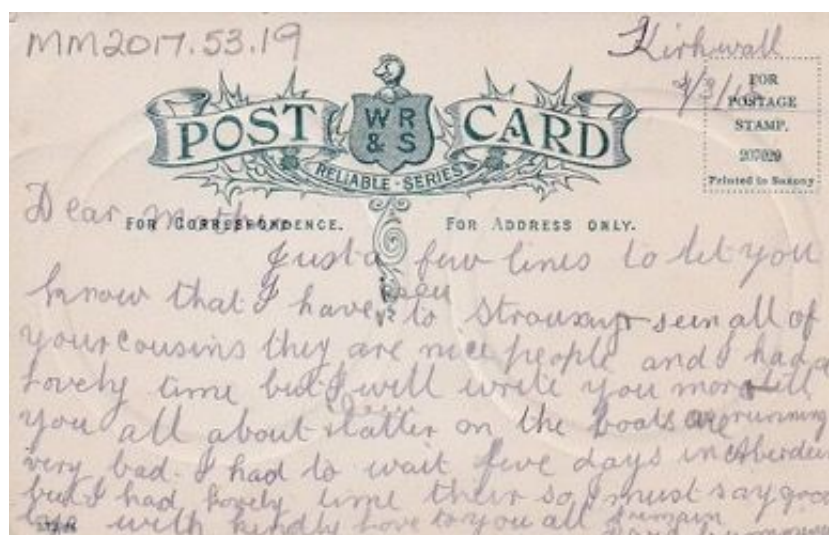 MM2017.53.19
Kirkwall
POST CARD
WR
& S
RELIABLE-SERIES
FOR
POSTAGE
STAMP.
207020
Printed in Saxony
Dear Mother
FOR CORRESPONDENCE. FOR ADDRESS ONLY.
Just a few lines to let you
know that I have been to seen all of
your cousins they are nice people and I had a
lovely time but I will write you more tell
you all about latter on the boats are running
very bad. I had to wait five days in Aberdeen
but I had lovely time their so I must say good
bye with kindly love to you all I remain